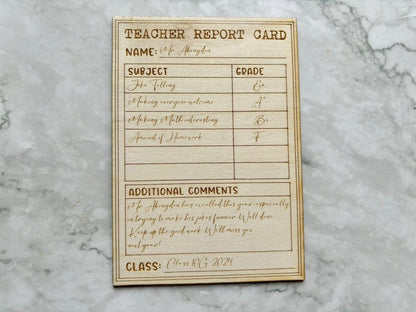 TEACHER REPORT CARD
NAME: Mr Abingdon
SUBJECT GRADE
Joke Telling E+
Making everyone welcome A*
Making Math interesting B+
Amount of Homework F
ADDITIONAL COMMENTS
Mr Abingdon has excelled this year especially
in trying to make his jokes funnier. Well done.
Keep up the good work. We'll miss you
next year!
CLASS: Class 10G 2024